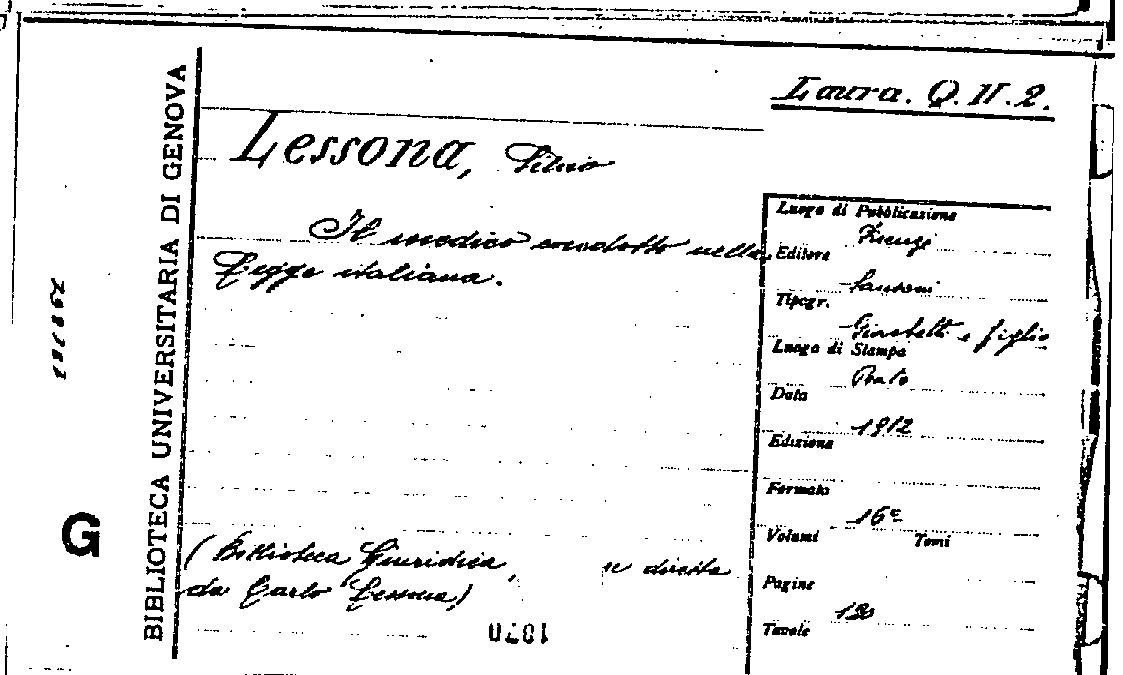 Laura. Q. II. 2.
Lessona, Silvio
Il medico condotto nella
Legge italiana.
(Biblioteca Giuridica,
diretta
da Carlo Lessona)
1870
BIBLIOTECA UNIVERSITARIA DI GENOVA
G
Luogo di Pubblicazione
Firenze
Editore
Sansoni
Tipogr.
Giachetti e figlio
Luogo di Stampa
Prato
Data
1912
Edizione
Formato
16º
Volumi Tomi
Pagine
130
Tavole